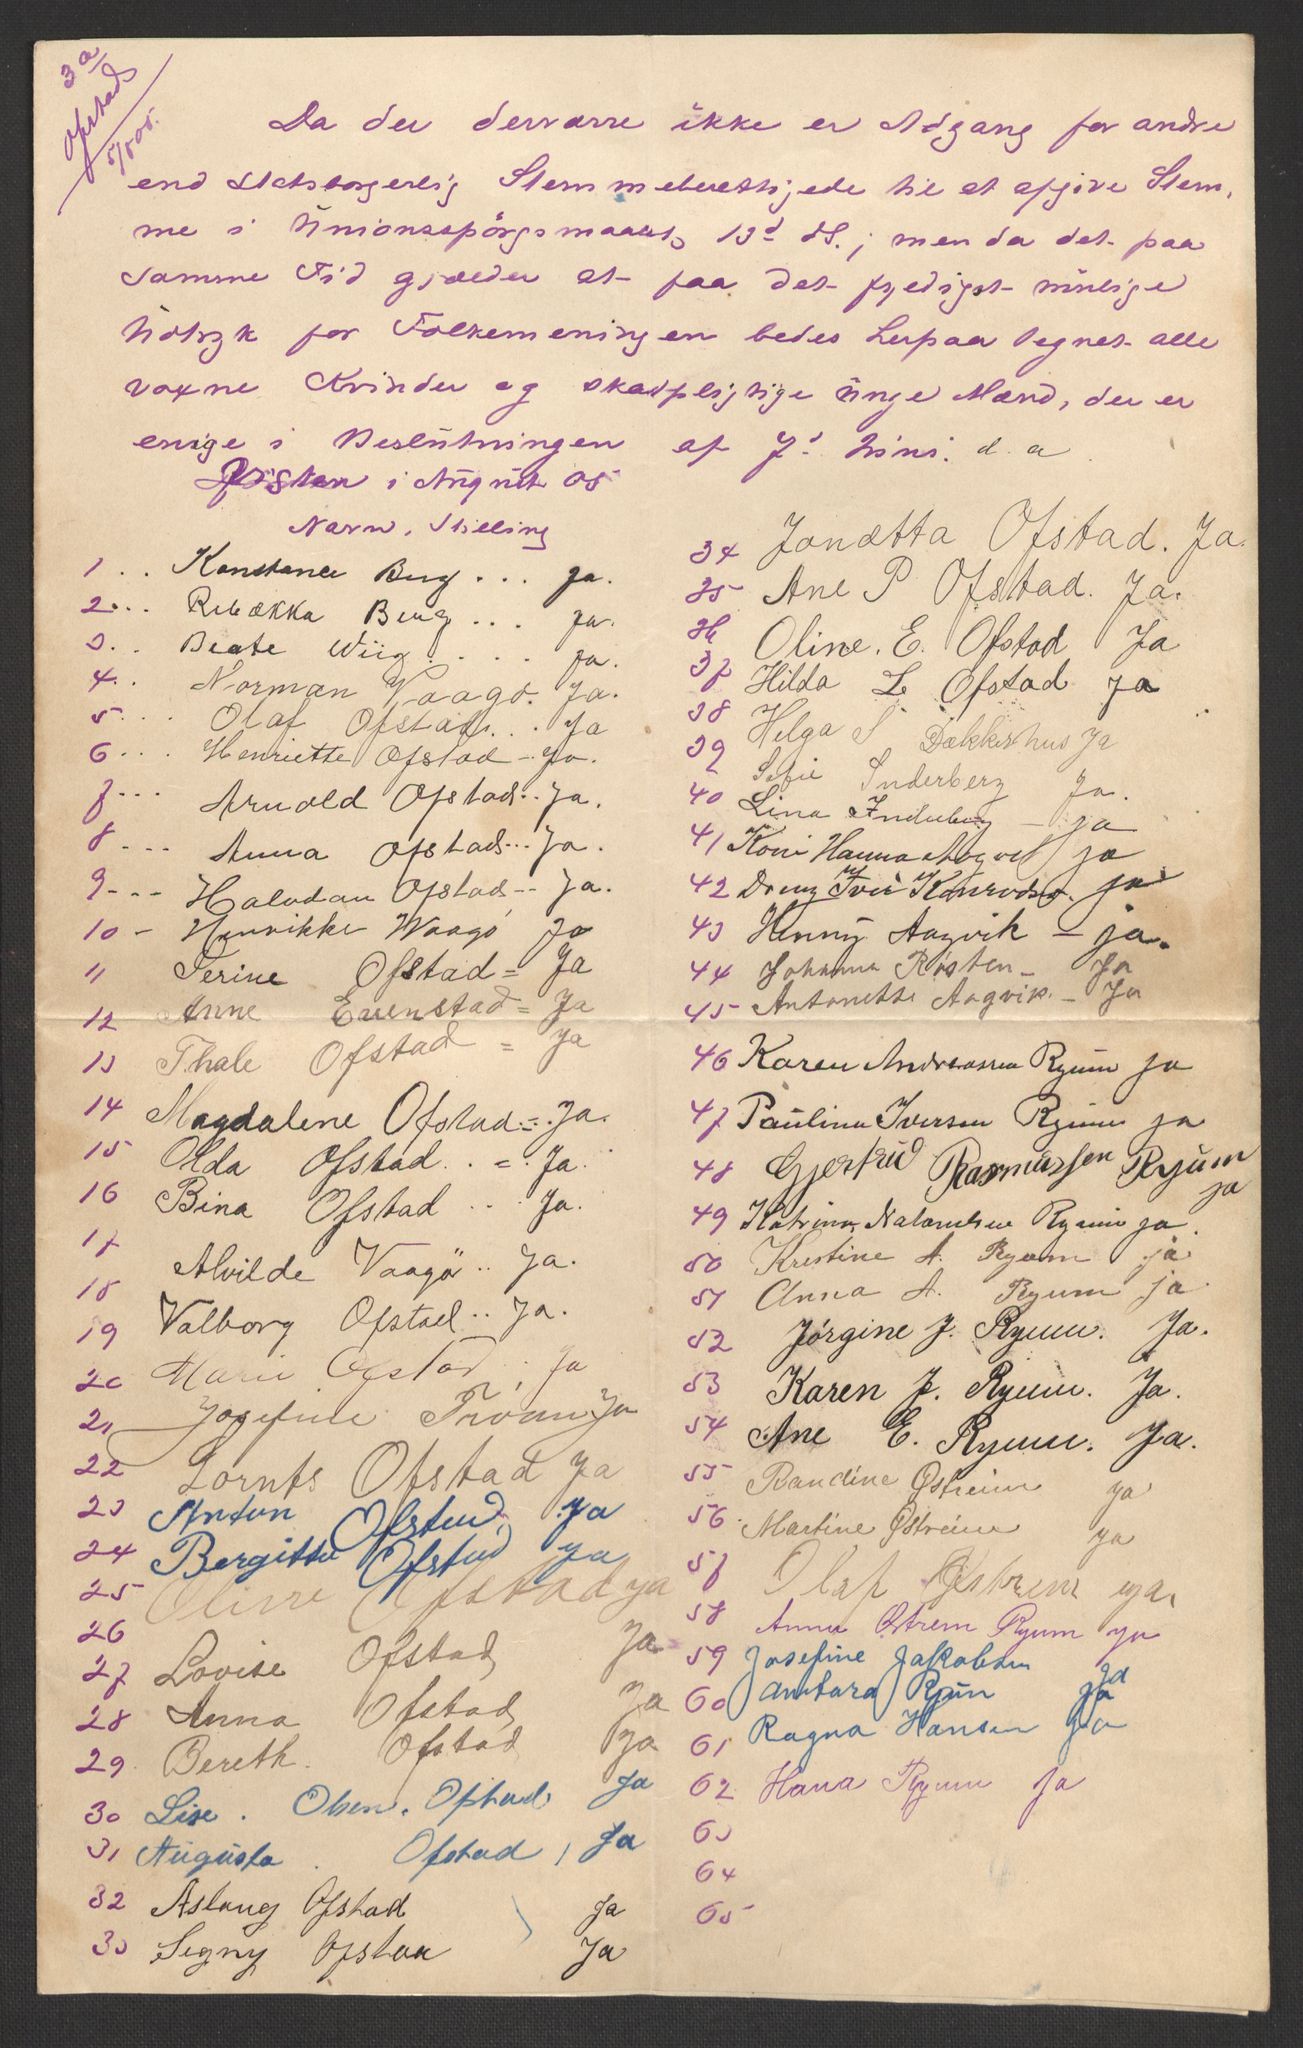 3a
Ofstad
5/8 05.
Da der derværre ikke er Adgang for andre
end statsborgerlig Stemmeberettigede til at afgive Stem,
me i Unionsspörgsmaalet 13d ds.; men da det paa
samme Tid gjælder at faa det fyldigst mulige
Udtryk for Folkemeningen bedes herpaa tegnet alle
voxne Kvinder og skatpligtige unge Mænd, der er
enige i Beslutningen af 7d Juni. d. a.
Røsten i August 05
Navn. Stilling
1 .. Konstance Berg ... ja.
2 ... Rebækka Berg ... ja.
3 .. Beate Wiig .... ja.
4 .. Norman Vaagø. Ja.
5 ... Olaf Ofstad ... Ja
6 ... Henriette Ofstad .. Ja.
7 ... Arnold Ofstad .. Ja.
8 ... Anna Ofstad ... Ja.
9 - - - Halvdan Ofstad -- Ja.
10 - Henrikke Waagø Ja
11 Serine Ofstad = Ja
12 Anne Evenstad = Ja
13 Thale Ofstad = Ja
14 Magdalene Ofstad = . Ja.
15 Olda Ofstad . = . Ja.
16 Bina Ofstad .. Ja.
17
18 Alvilde Vaagø .. Ja.
19 Valborg Ofstad .. Ja.
20 Marie Ofstad . Ja
21 Josefine Tröan Ja
22 Lornts Ofstad Ja
23 Anton Ofstad, Ja
24 Bergitte Ofstad Ja
25 Oline Ofstad Ja
26
27 Lovise Ofstad Ja
28 Anna Ofstad Ja
29 Bereth. Ofstad Ja
30 Lise. Olsen. Ofstad Ja
31 Augusta. Ofstad, Ja
32 Aslaug Ofstad Ja
33 Segny Ofstad Ja
34 Jonætta Ofstad. Ja.
35 Ane P Ofstad. Ja.
36 Oline. E. Ofstad Ja
37 Hilda L Ofstad Ja
38 Helga S Dækkerhus Ja
39 Sofie Inderberg Ja.
40 Lina Inderberg - ja
41 Hanna Aagvik ja
42 Iver Konradsen. ja
43 Henny Aagvik - ja.
44 Johanna Røsten - Ja
45 Antonette Aagvik - Ja
46 Karen Andreassen Ryum ja
47 Paulina Iversen Ryum ja
48 Gjertrud Rasmussen Ryum
ja
49 Katrina Ryum ja.
50 Kristine A. Ryum ja
51 Anna A. Ryum ja
52 Jørgine J. Ryum. Ja.
53 Karen J. Ryum. Ja.
54 Ane E. Ryum. Ja.
55 Randine Østreim ja
56 Martine Østreim ja
57 Olaf Østrem ja
58 Anna Østrem Ryum ja
59 Josefine Jakobsen Ja
60 Ryun ja
61 Ragna Hansen Ja
62 Hana Ryum Ja
63
64
65